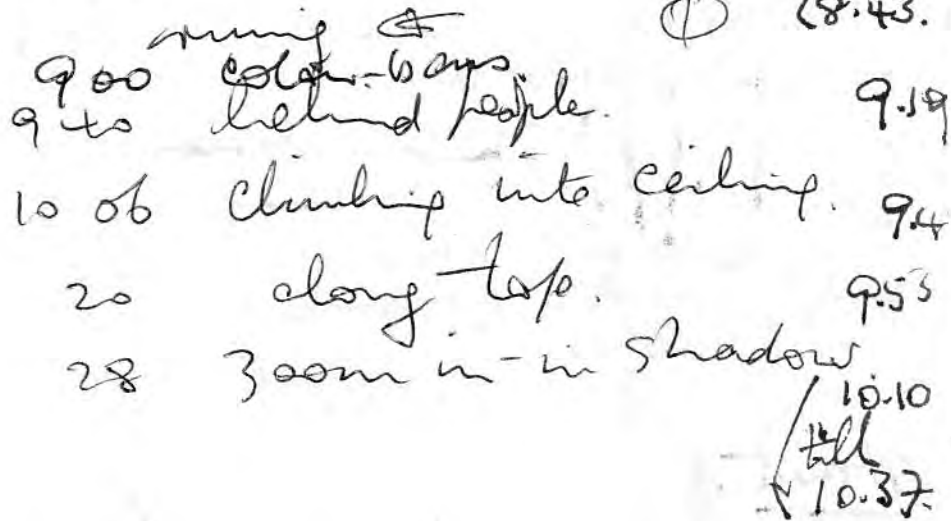 ① (8.43.
900 colour-bars
9 40 behind people. 9.19
10 06 Climbing into ceiling. 9.4
20 along top. 9.53
28 Zoom in - in shadow
10.10
till
10.37.